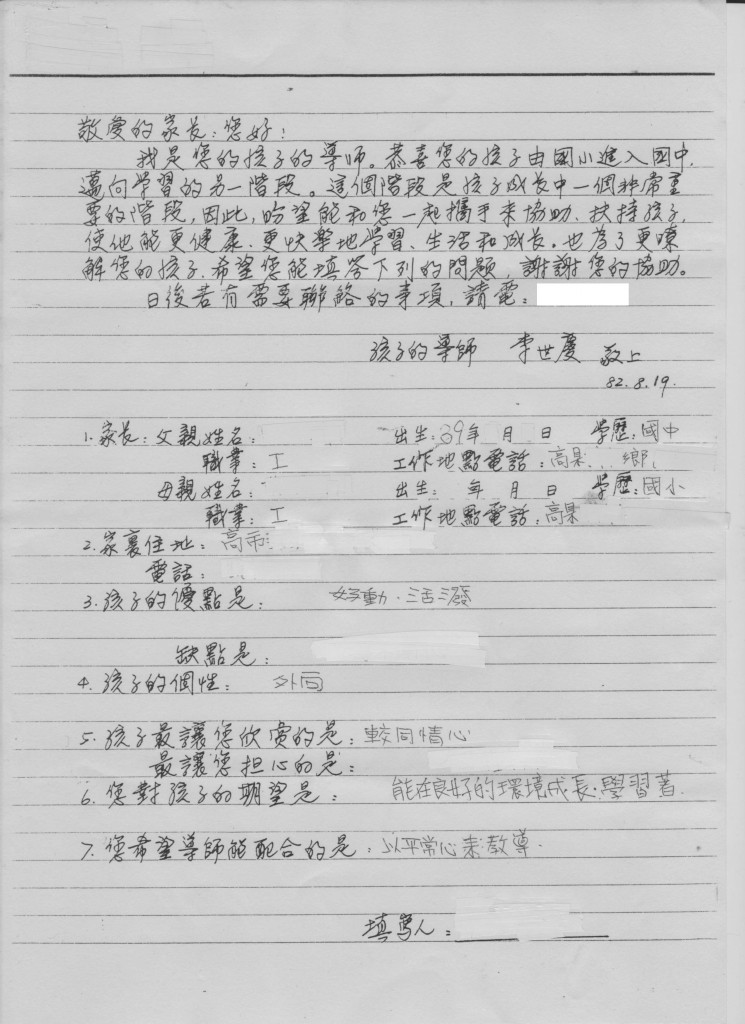 敬愛的家長：您好！
我是您的孩子的導師。恭喜您的孩子由國小進入國中，
邁向學習的另一階段。這個階段是孩子成長中一個非常重
要的階段，因此，盼望能和您一起攜手來協助、扶持孩子，
使他能更健康、更快樂地學習、生活和成長。也為了更瞭
解您的孩子，希望您能填答下列的問題，謝謝您的協助。
日後若有需要聯絡的事項，請電：
孩子的導師 李世慶 敬上
82.8.19.
1.家長：父親姓名： 出生：39年 月 日 學歷：國中
職業：工 工作地點電話：高 鄉
母親姓名： 出生： 年 月 日 學歷：國小
職業：工 工作地點電話：高
2.家裏住址：高
電話：
3.孩子的優點是： 好動．活潑
缺點是：
4.孩子的個性： 外向
5.孩子最讓您欣賞的是：較同情心
最讓您担心的是：
6.您對孩子的期望是： 能在良好的環境成長．學習著
7.您希望導師能配合的是：以平常心來教導．
填寫人：